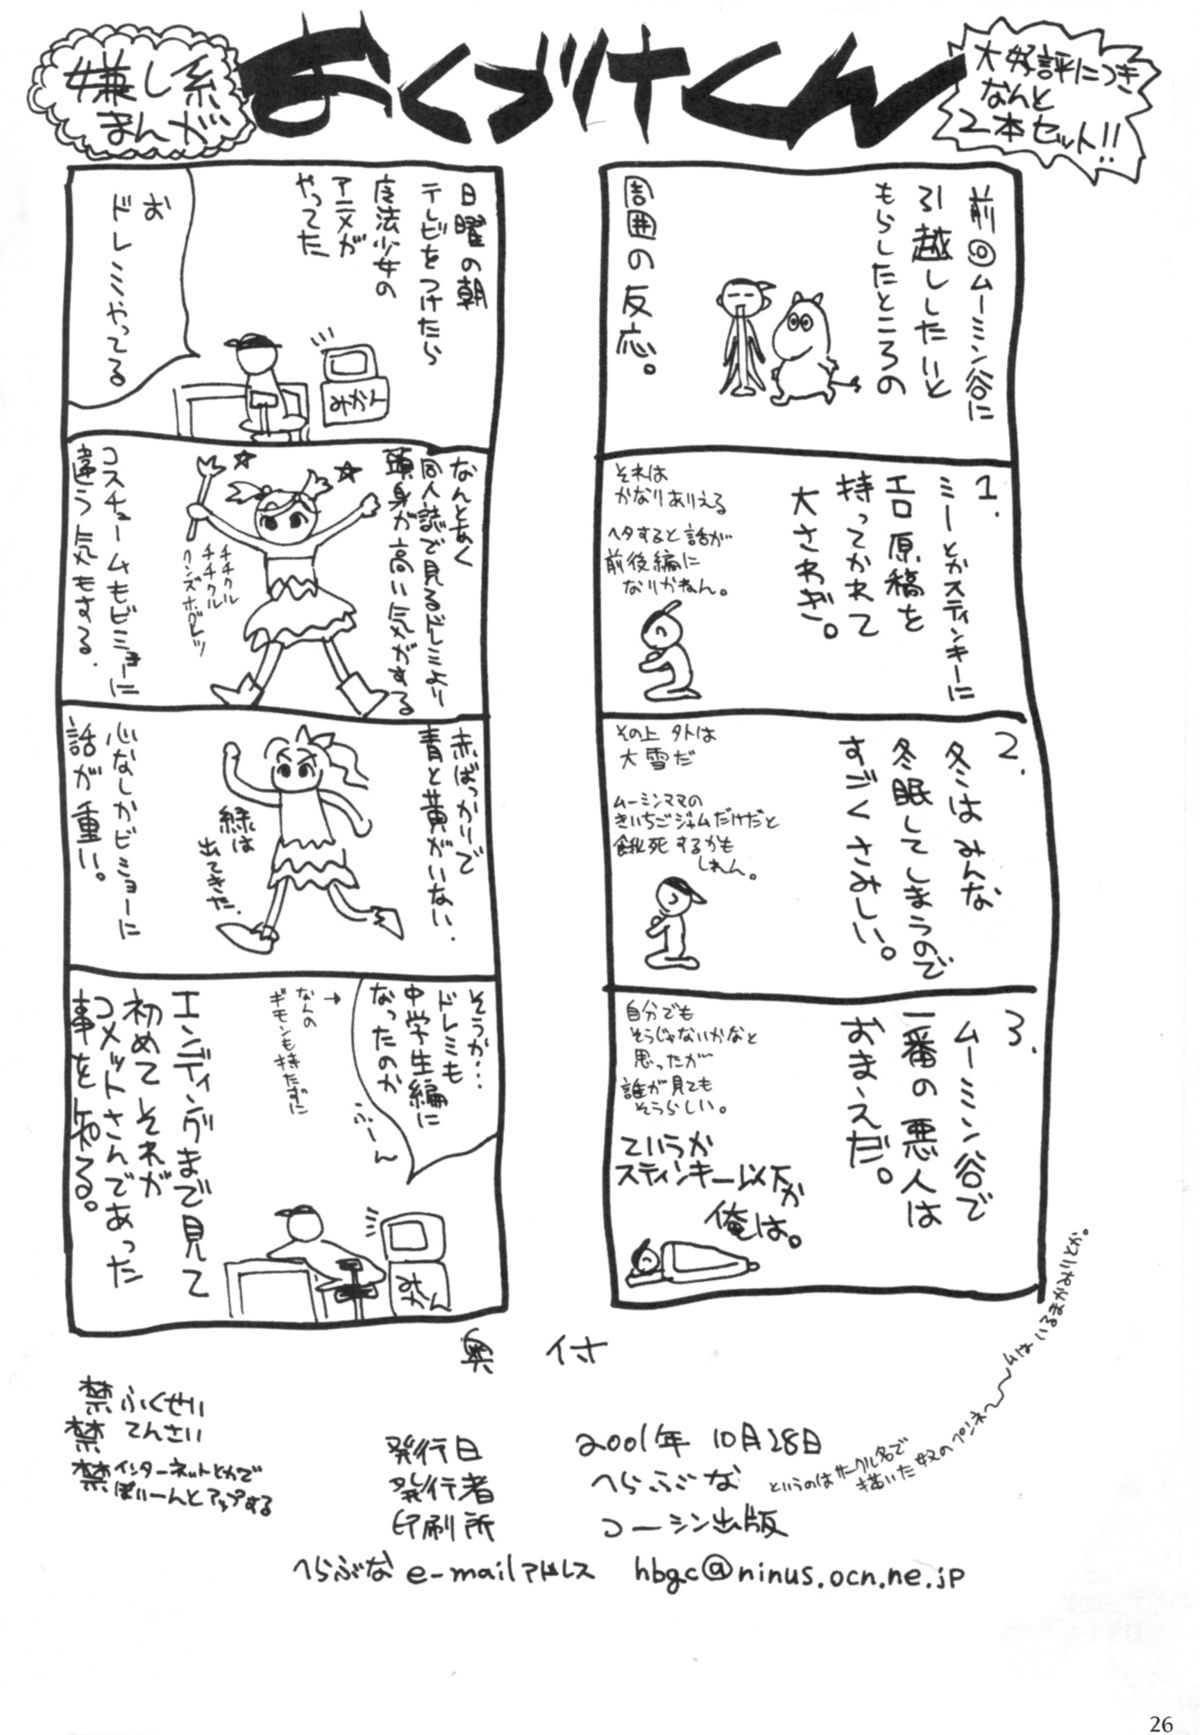 嫌し系
まんが
おくづけくん
大好評につき
なんと
2本セット!!
前回ムーミン谷に
引越ししたいと
もらしたところの
周囲の反応。
1.
ミーとかスティンキーに
エロ原稿を
持ってかれて
大さわぎ。
それは
かなりありえる
ヘタすると話が
前後編に
なりかねん。
2.
冬はみんな
冬眠してしまうので
すごくさみしい。
その上 外は
大雪だ
ムーミンママの
きいちごジャムだけだと
餓死するかも
しれん。
3.
ムーミン谷で
一番の悪人は
おまえだ。
自分でも
そうじゃないかなと
思ったが
誰が見ても
そうらしい。
ていうか
スティンキー以下か
俺は。
日曜の朝
テレビをつけたら
魔法少女の
アニメが
やってた
お
ドレミやってる
みかん
なんとなく
同人誌で見るドレミより
頭身が高い気がする
チチクル
チチクル
クンズホグレツ
コスチュームもビミョーに
違う気もする.
赤ばっかりで
青と黄がいない.
緑は
出てきた.
心なしかビミョーに
話が重い。
そうか…
ドレミも
中学生編に
なったのか
ふーん
→
なんの
ギモンも持たずに
エンディングまで見て
初めてそれが
コメットさんであった
事を知る。
みかん
奥付
禁ふくせい
禁てんさい
禁インターネットとかで
ぼいーんとアップする
発行日 2001年 10月28日
発行者 へらぶな
というのはサークル名で
描いた奴のペンネームはいるまかまりとか。
印刷所 コーシン出版
へらぶな e-mailアドレス hbgc@ninus.ocn.ne.jp
26